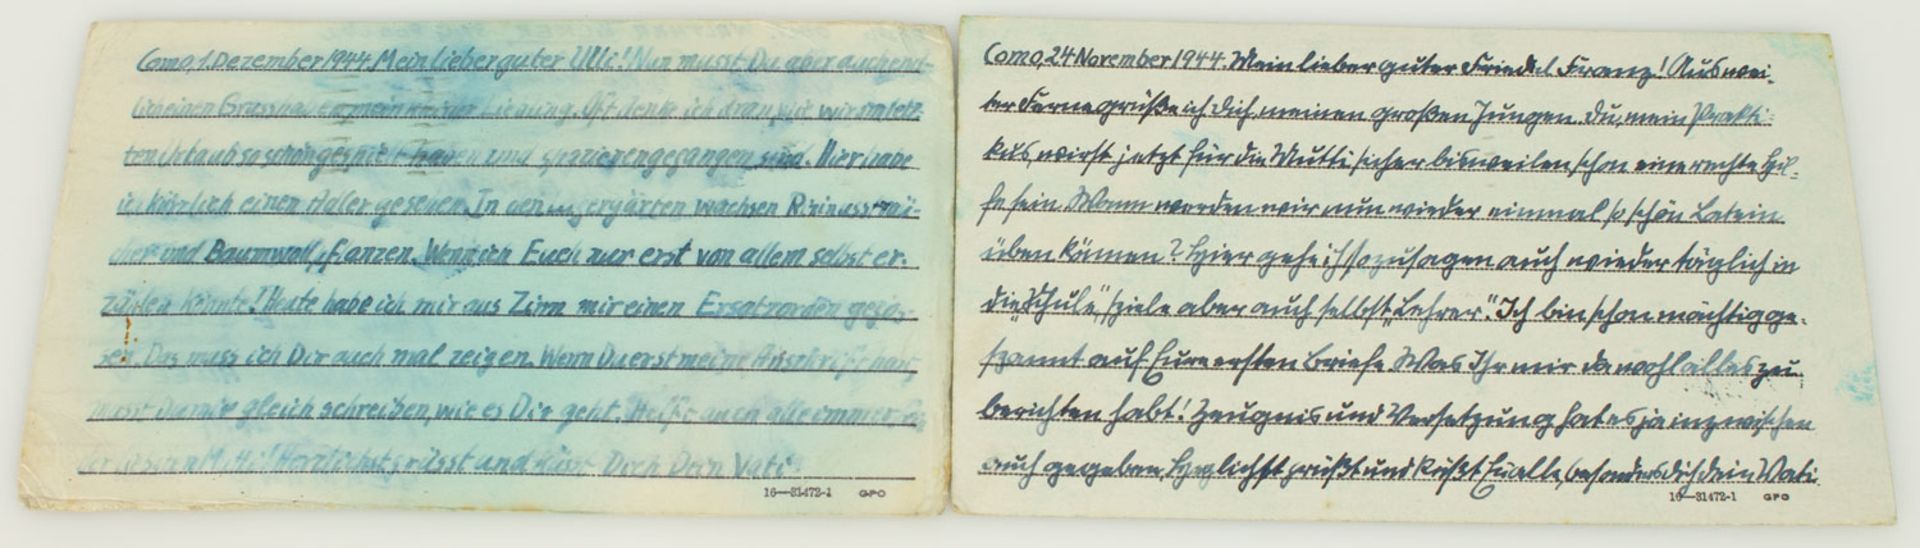 Como, 1. Dezember 1944. Mein lieber guter Ulli! Nun musst Du aber auch end-
lich einen Gruss haben, mein kleiner Liebling. Oft denke ich dran, wie wir im letz-
ten Urlaub so schön gespielt haben und spazierengegangen sind. Hier habe
ich kürzlich einen Adler gesehen. In den wachsen Rizinussträu-
cher und Baumwollpflanzen. Wenn ich Euch nur erst von allem selbst er-
zählen könnte! Heute habe ich mir aus Zinn mir einen Ersatzorden gegos-
sen. Das muss ich Dir auch mal zeigen. Wenn Du erst meine Anschrift hast,
musst Du mir gleich schreiben, wie es Dir geht. Helft auch alle immer
der lieben Mutti! Herzlichst grüsst und küsst Dich Dein Vati
16—31472-1 GPO
Como, 24 November 1944. Mein lieber guter Friedel Franz! Aus wei-
ter Ferne grüße ich Dich, meinen großen Jungen. Du, mein Prakti-
kus, wirst jetzt für die Mutti sicher bisweilen schon eine rechte Hil-
fe sein. Wann werden wir nun wieder einmal so schön Latein
üben können? Hier gehe ich sozusagen auch wieder täglich in
die „Schule“, spiele aber auch selbst „Lehrer“. Ich bin schon mächtig ge-
spannt auf Eure ersten Briefe. Was Ihr mir da wohl alles zu
berichten habt! Zeugnis und Versetzung hat es ja inzwischen
auch gegeben. Herzlichst grüßt und küßt Eu alle, besonders dich dein Vati
16—31472-1 GPO